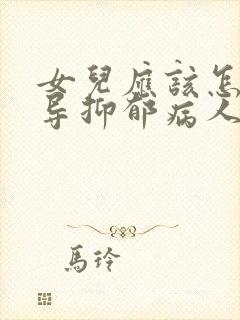 女兒應該怎
导抑郁病人
馬玲